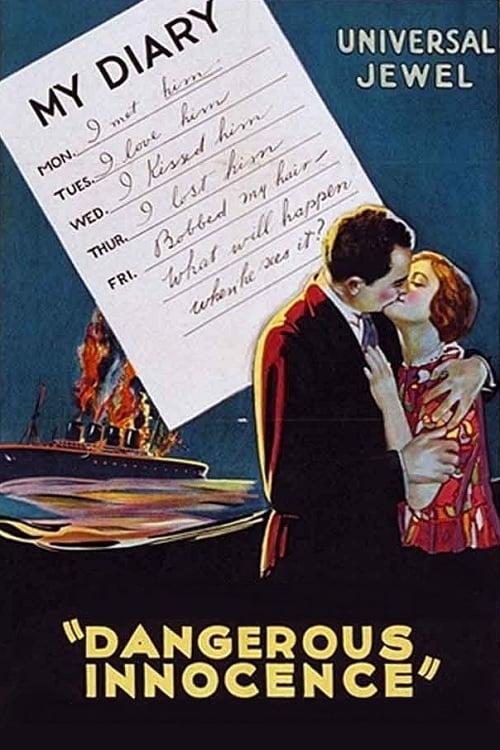 MY DIARY
MON. I met him
TUES. I love him
WED. I Kissed him
THUR. I lost him
FRI. Bobbed my hair —
What will happen
when he sees it?
UNIVERSAL
JEWEL
"DANGEROUS
INNOCENCE"